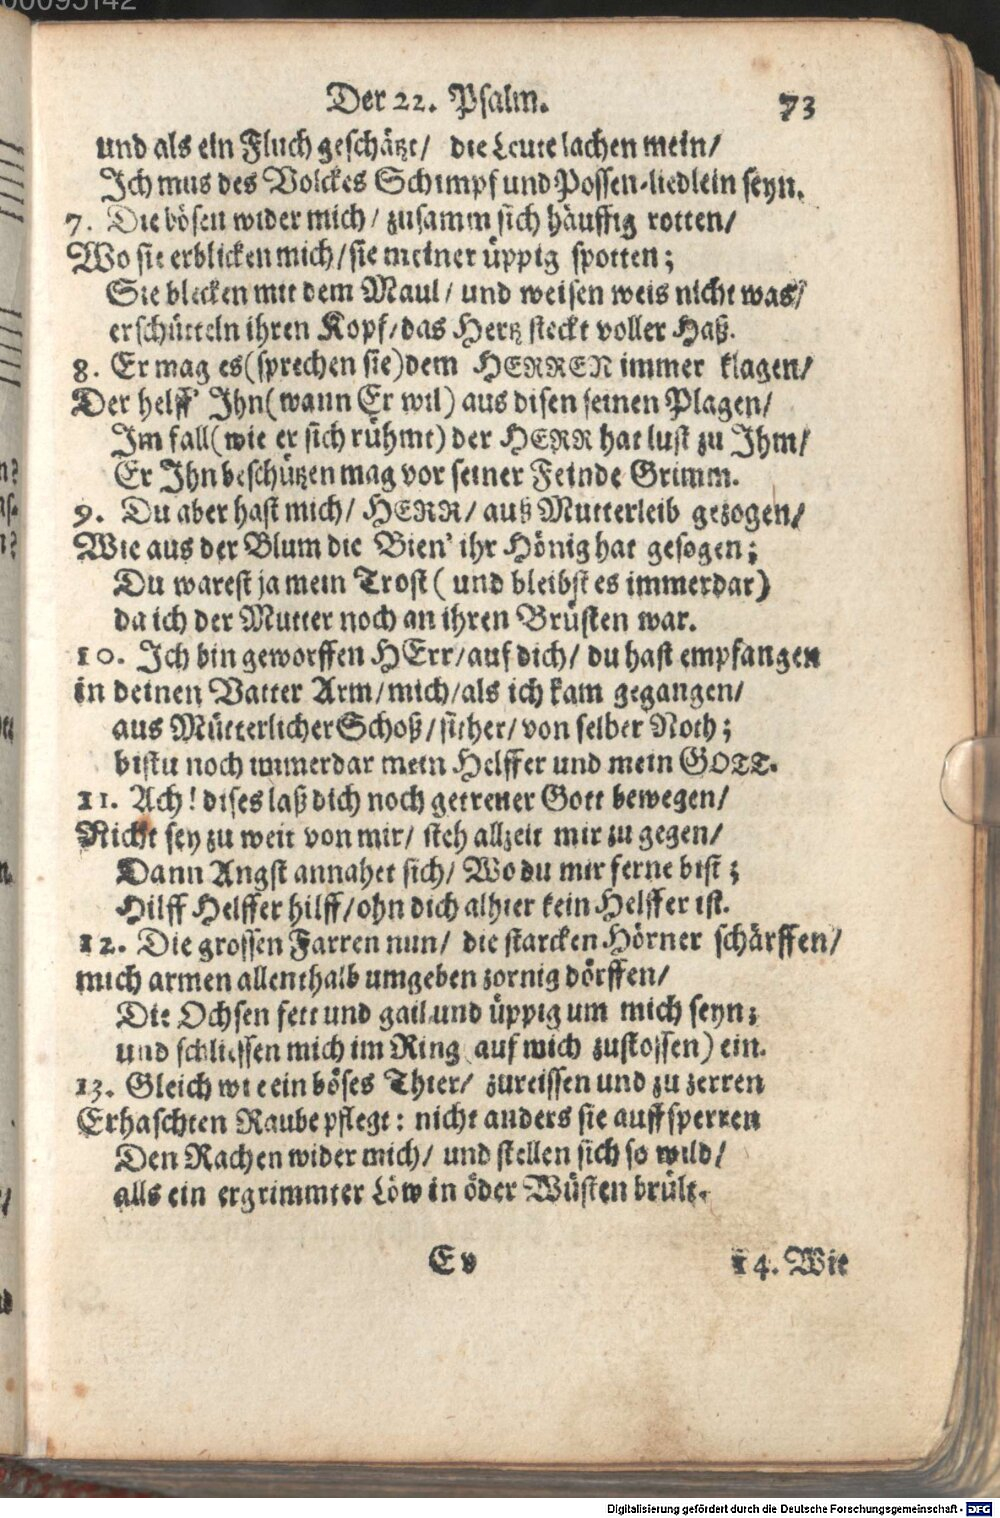 00095142
Der 22. Psalm. 73
und als ein Fluch geschätzt/ die Leute lachen mein/
Ich mus des Volckes Schimpf und Possen-liedlein seyn.
7. Die bösen wider mich/ zusamm sich häuffig rotten/
Wo sie erblicken mich/ sie meiner üppig spotten;
Sie blecken mit dem Maul/ und weisen weis nicht was/
erschütteln ihren Kopf/ das Hertz steckt voller Haß.
8. Er mag es (sprechen sie) dem HERREN immer klagen/
Der helff' Ihn (wann Er wil) aus disen seinen Plagen/
Im fall (wie er sich rühmt) der HERR hat lust zu Ihm/
Er Ihn beschützen mag vor seiner Feinde Grimm.
9. Du aber hast mich/ HERR/ auß Mutterleib gezogen/
Wie aus der Blum die Bien' ihr Hönig hat gesogen;
Du warest ja mein Trost (und bleibst es immerdar)
da ich der Mutter noch an ihren Brüsten war.
10. Ich bin geworffen HErr/ auf dich/ du hast empfangen
in deinen Vatter Arm/ mich/ als ich kam gegangen/
aus Mütterlicher Schoß/ sither/ von selber Noth;
bistu noch immerdar mein Helffer und mein GOTT.
11. Ach! dises laß dich noch getrener Gott bewegen/
Nicht sey zu weit von mir/ steh allzeit mir zu gegen/
Dann Angst annahet sich/ Wo du mir ferne bist;
Hilff Helffer hilff/ ohn dich alhier kein Helffer ist.
12. Die grossen Farren nun/ die starcken Hörner schärffen/
mich armen allenthalb umgeben zornig dörffen/
Die Ochsen fett und gail und üppig um mich seyn;
und schliessen mich im Ring (auf mich zustossen) ein.
13. Gleich wie ein böses Thier/ zureissen und zu zerren
Erhaschten Raube pflegt: nicht anders sie auffsperren
Den Rachen wider mich/ und stellen sich so wild/
alls ein ergrimmter Löw in öder Wüsten brült.
E v 14. Wie
Digitalisierung gefördert durch die Deutsche Forschungsgemeinschaft - DFG